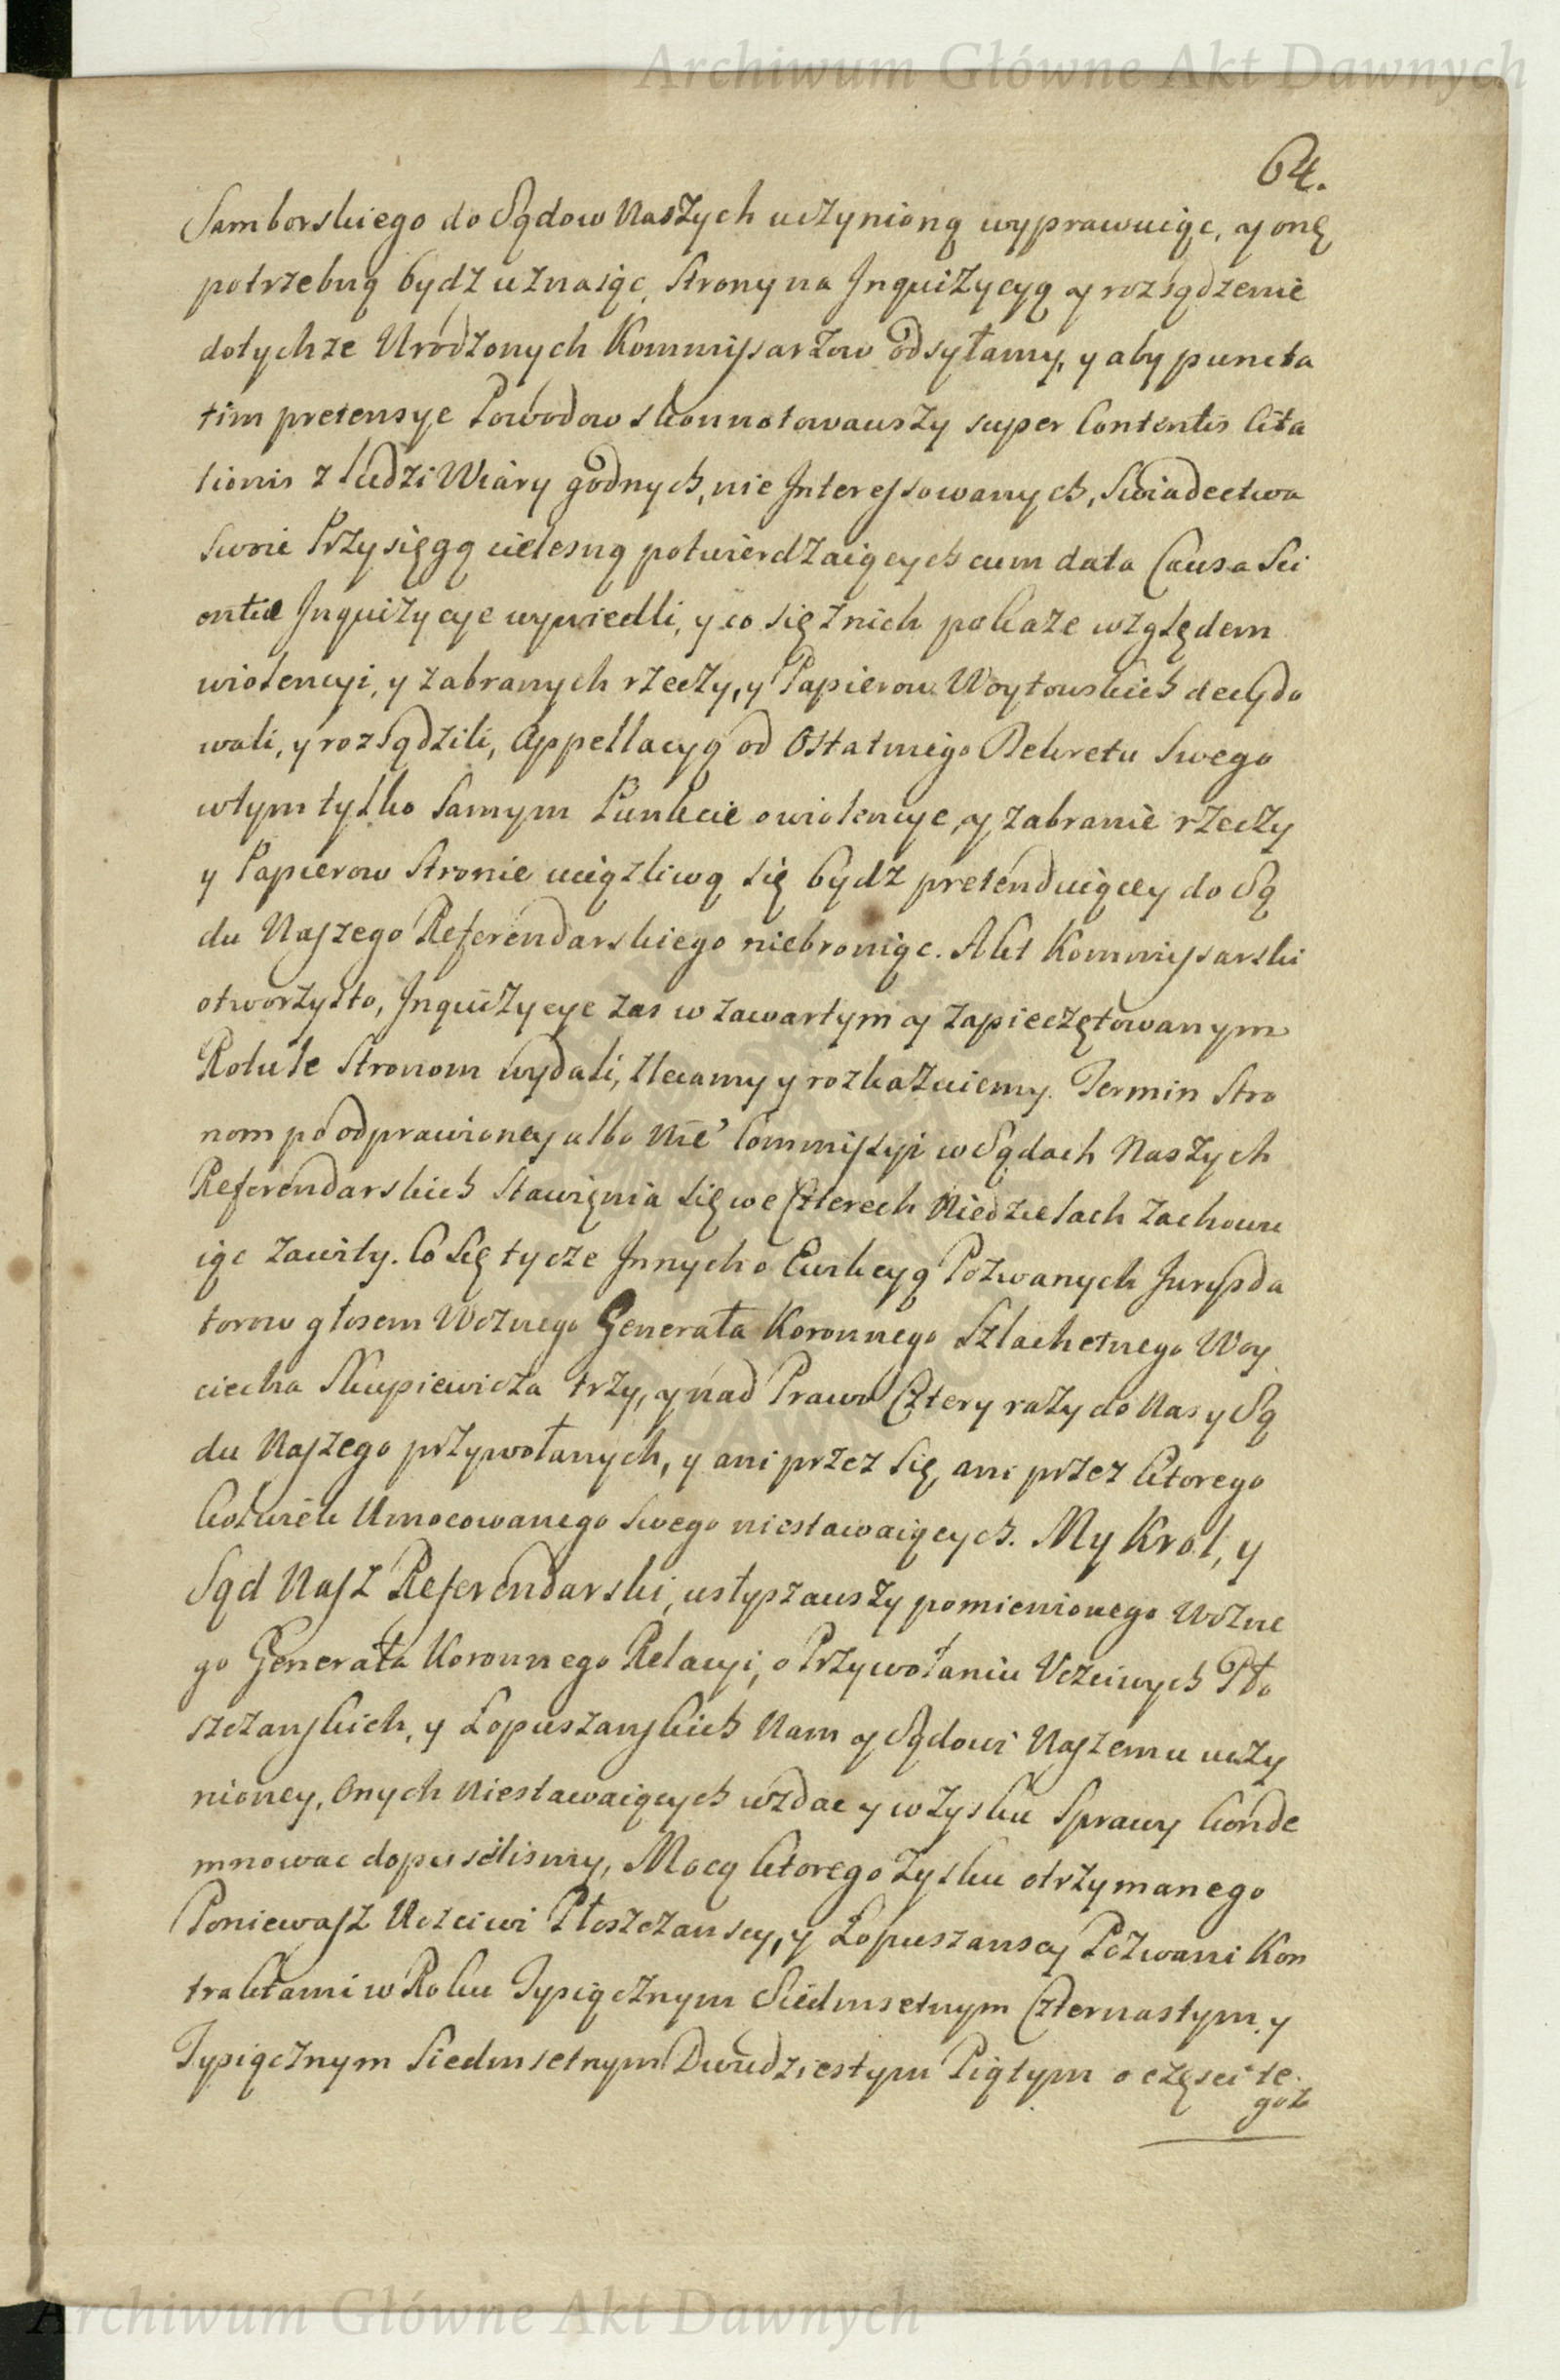 Archiwum Główne Akt Dawnych
64.
Samborskiego do Sądow Naszych uczynioną wyprawuiąc, y onę
potrzebną bydz uznaiąc, Strony na Inquizycyą y rozsądzenie
dotychze Urodzonych Kommissarzow odsyłamy, y aby puncta
tim pretensye Powodow skonnotowawszy super Contentis Cita
tionis z ludzi Wiary godnych, nie Interessowanych, Swiadectwa
Swoie Przysięgą cielesną potwierdzaiących cum data Causa Sci
entiæ Inquizycye wywiedli, y co się znich pokaze względem
wiolencyi, y zabranych rzeczy, y Papierow Woytowskich decydo
wali, y rozsądzili, Appellacyą od Ostatniego Dekretu Swego
wtym tylko Samym Punkcie o wiolencye, y zabranie rzeczy
y Papierow Stronie uciązliwą się bydz pretenduiącey do Są
du Naszego Referendarskiego niebroniąc. Akt Kommissarski
otworzysto, Inquizycye zas w zawartym y zapieczętowanym
Rotule Stronom wydali, zlecamy y rozkazuiemy. Termin Stro
nom po odprawioney albo Nie Commissyi w Sądach Naszych
Referendarskich Stawienia się we Czterech Niedzielach zachowu
iąc zawity. Co się tycze Innych o Ewikcyą Pozwanych Jurysda
torow głosem Woznego Generała Koronnego Szlachetnego Woy
ciecha Skupiewicza trzy, y nad Prawo Cztery razy do Nas y Są
du Naszego przywołanych, y ani przez Się, ani przez ktorego
kolwiek Umocowanego Swego niestawaiących. My Krol, y
Sąd Nasz Referendarski, usłyszawszy pomienionego Wozne
go Generała Koronnego Relacyi, o Przywołaniu Uczciwych Pło
szczanskich, y Łopuszanskich Nam y Sądowi Naszemu uczy
nioney, Onych Niestawaiących wzdac y w zysku Sprawy konde
mnowac dopuscilismy, Mocą ktorego zysku otrzymanego
Poniewasz Uczciwi Płoszczanscy, y Łopuszanscy Pozwani Kon
traktami w Roku Tysiącznym Siedmsetnym Czternastym, y
Tysiącznym Siedmsetnym Dwudziestym Piątym o częsci te
goz
Archiwum Główne Akt Dawnych